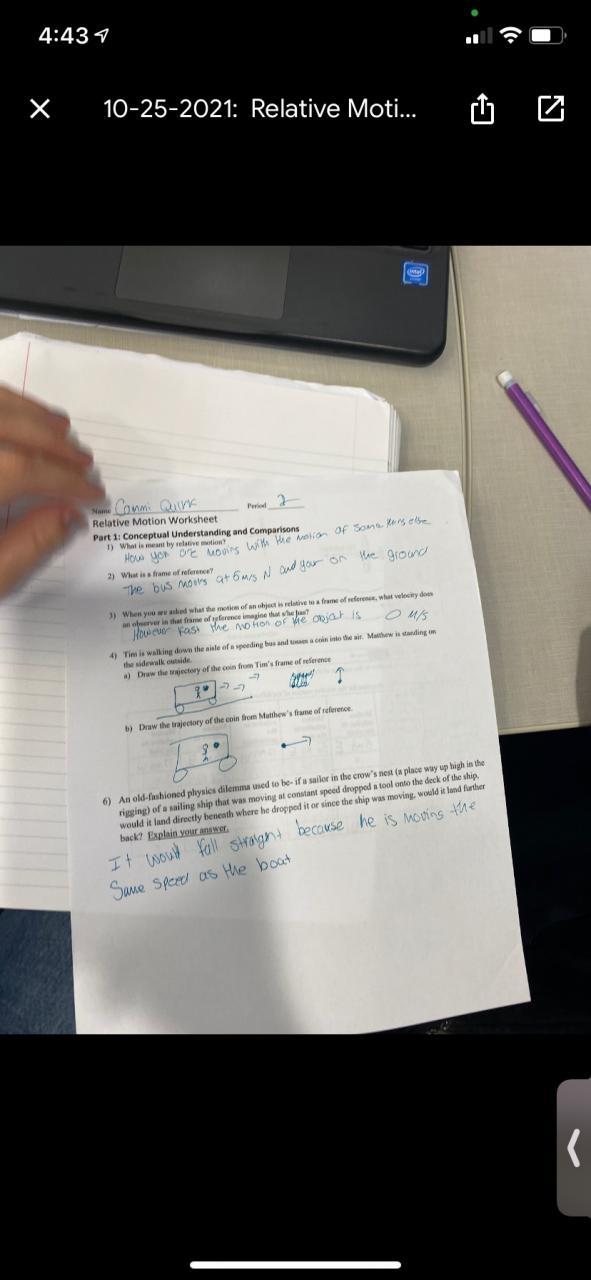 4:43
10-25-2021: Relative Moti...
intel
Name Cammi Quirk Period 2
Relative Motion Worksheet
Part 1: Conceptual Understanding and Comparisons
1) What is meant by relative motion?
How you are moving with the motion of something else
2) What is a frame of reference?
The bus moves at 5m/s N and your on the ground
3) When you are asked what the motion of an object is relative to a frame of reference, what velocity does
an observer in that frame of reference imagine that s/he has?
However fast the motion of the object is 0 M/S
4) Tim is walking down the aisle of a speeding bus and tosses a coin into the air. Matthew is standing on
the sidewalk outside.
a) Draw the trajectory of the coin from Tim's frame of reference
b) Draw the trajectory of the coin from Matthew's frame of reference.
6) An old-fashioned physics dilemma used to be- if a sailor in the crow's nest (a place way up high in the
rigging) of a sailing ship that was moving at constant speed dropped a tool onto the deck of the ship,
would it land directly beneath where he dropped it or since the ship was moving, would it land further
back? Explain your answer.
It would fall straight because he is moving the
Same speed as the boat